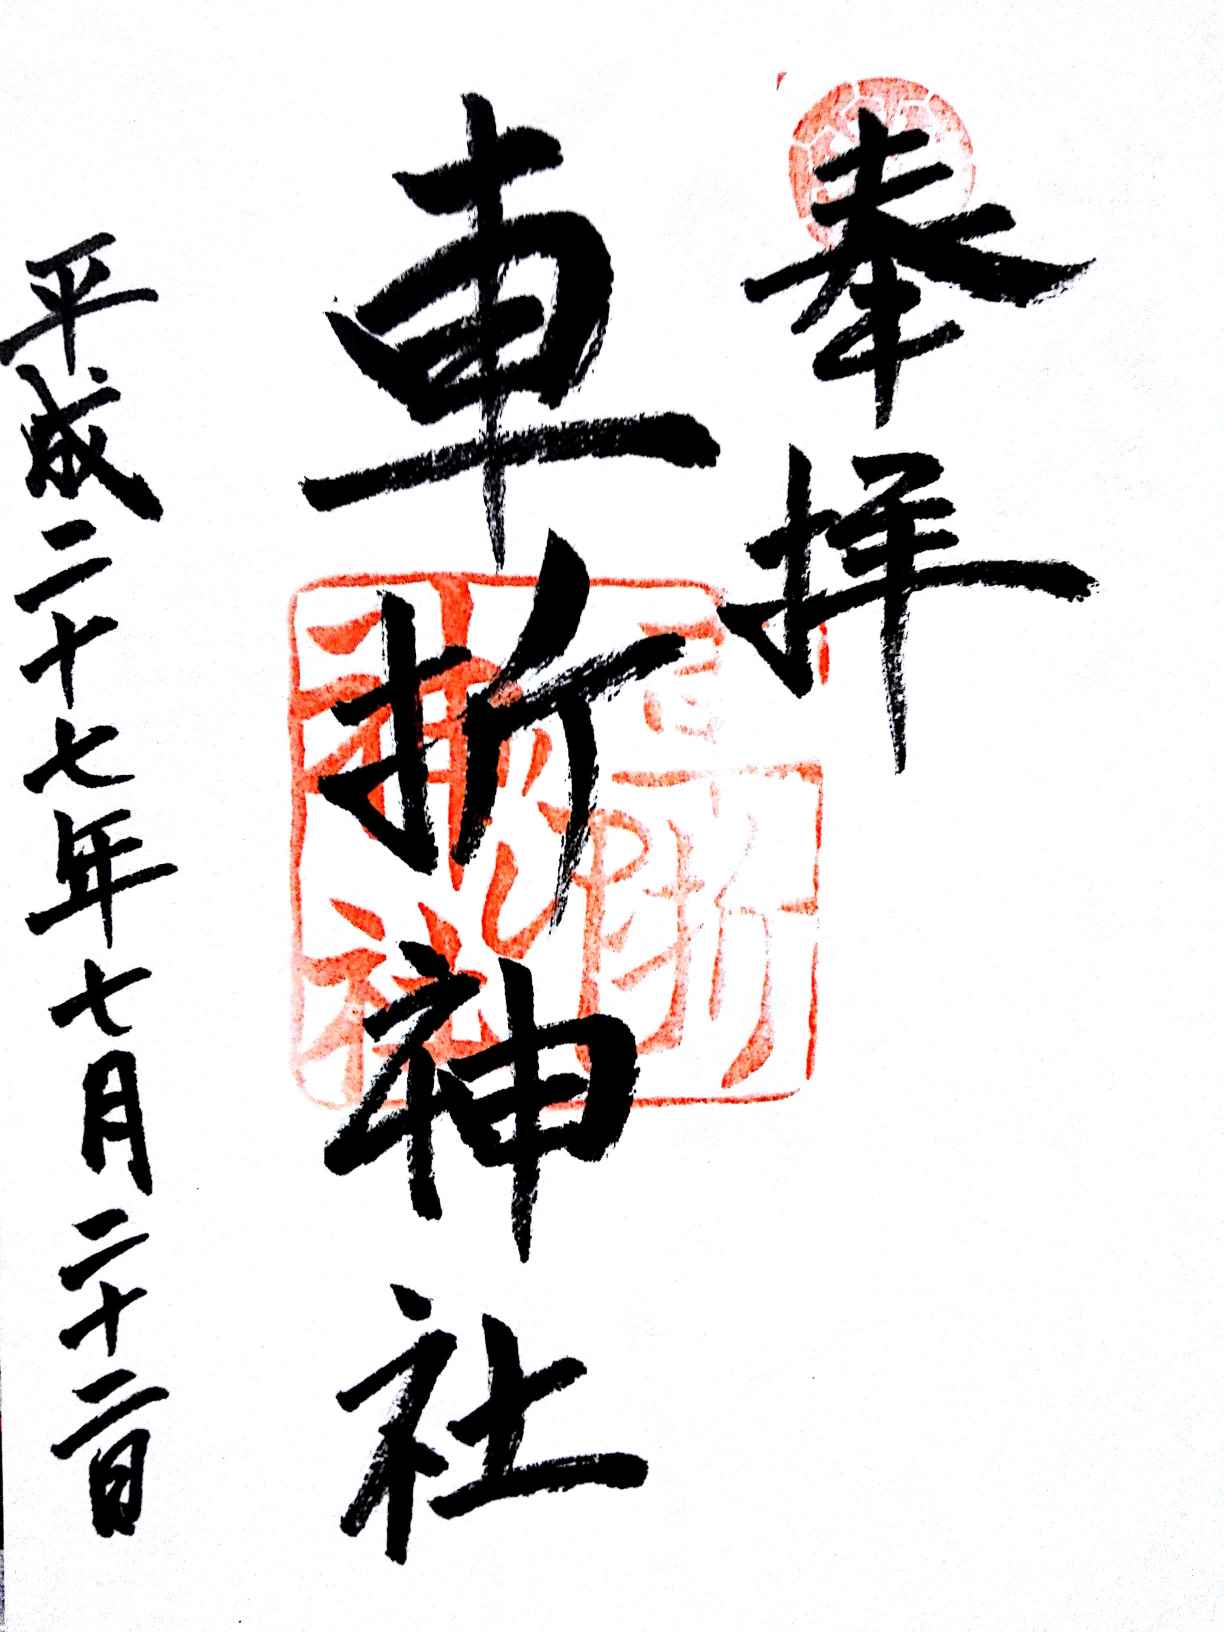 奉拝
車折神社
平成二十七年七月二十二日